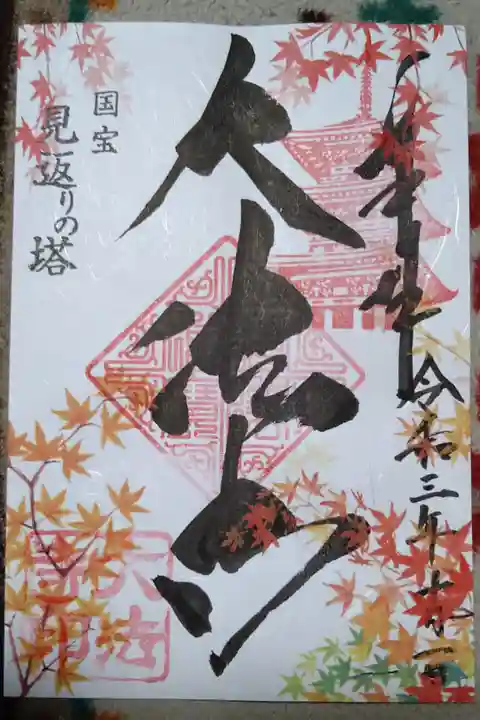 奉拝 令和三年
大法寺
国宝
見返りの塔
大法寺印